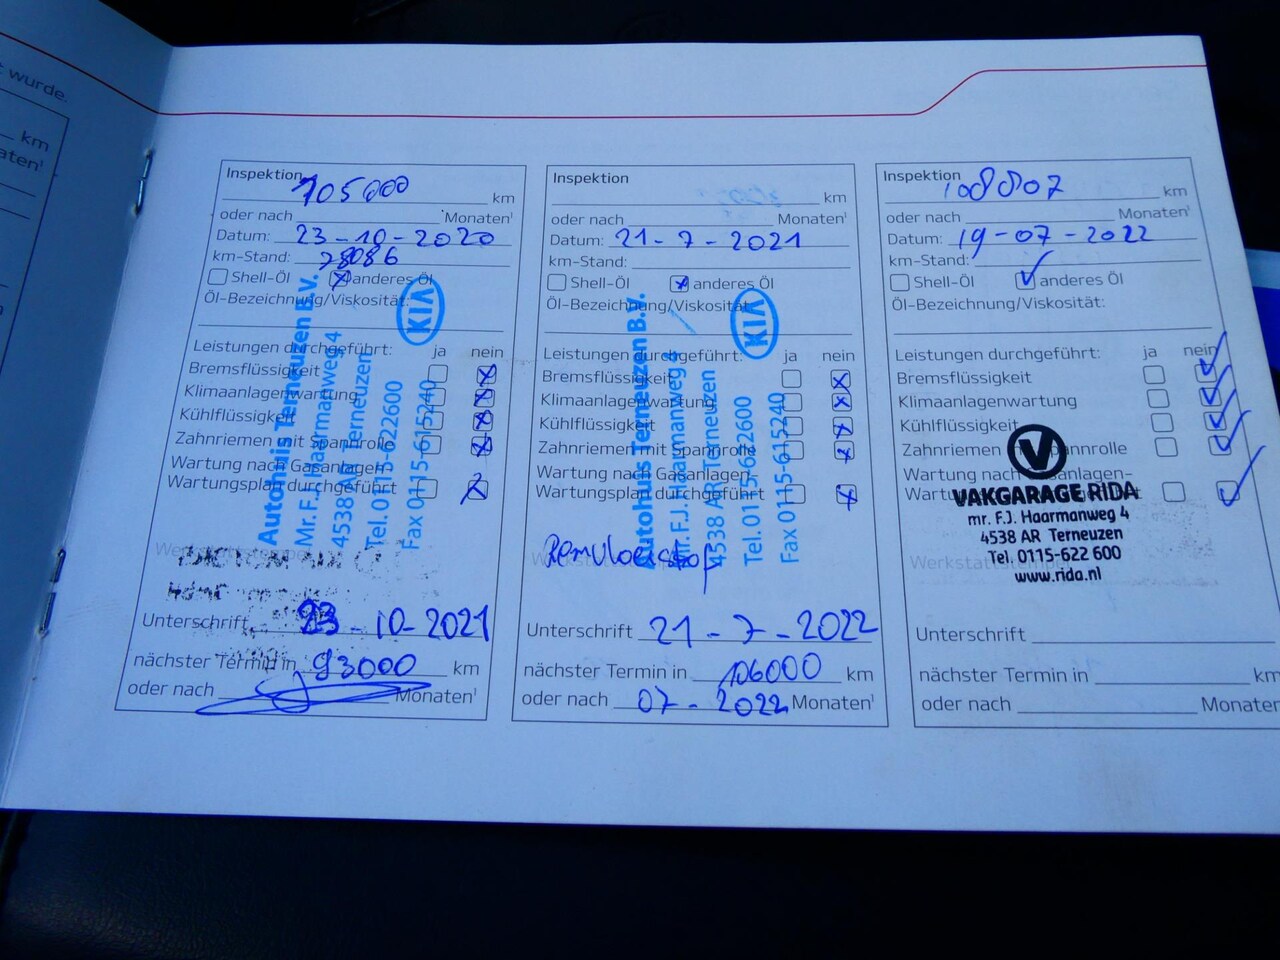 t wurde.
km
aten¹
Inspektion 105000 km
oder nach Monaten¹
Datum: 23-10-2020
km-Stand: 78086
Shell-Öl anderes Öl
Öl-Bezeichnung/Viskosität:
Leistungen durchgeführt: ja nein
Bremsflüssigkeit
Klimaanlagenwartung
Kühlflüssigkeit
Zahnriemen mit Spannrolle
Wartung nach Gasanlagen-
Wartungsplan durchgeführt
Autohuis Terneuzen B.V.
Mr. F.J. Haarmanweg 4
4538 AR Terneuzen
Tel. 0115-622600
Fax 0115-615240
KIA
Unterschrift 23-10-2021
nächster Termin in 93000 km
oder nach Monaten¹
Inspektion
km
oder nach Monaten¹
Datum: 21-7-2021
km-Stand:
Shell-Öl anderes Öl
Öl-Bezeichnung/Viskosität:
Leistungen durchgeführt: ja nein
Bremsflüssigkeit
Klimaanlagenwartung
Kühlflüssigkeit
Zahnriemen mit Spannrolle
Wartung nach Gasanlagen-
Wartungsplan durchgeführt
Autohuis Terneuzen B.V.
Mr. F.J. Haarmanweg 4
4538 AR Terneuzen
Tel. 0115-622600
Fax 0115-615240
KIA
Remvloeistof
Unterschrift 21-7-2022
nächster Termin in 106000 km
oder nach 07-2022 Monaten¹
Inspektion 108807 km
oder nach Monaten¹
Datum: 19-07-2022
km-Stand:
Shell-Öl anderes Öl
Öl-Bezeichnung/Viskosität:
Leistungen durchgeführt: ja nein
Bremsflüssigkeit
Klimaanlagenwartung
Kühlflüssigkeit
Zahnriemen Spannrolle
Wartung nach Gasanlagen-
VAKGARAGE RIDA
mr. F.J. Haarmanweg 4
4538 AR Terneuzen
Tel. 0115-622 600
Werkstattstempel
www.rida.nl
Unterschrift
nächster Termin in km
oder nach Monaten